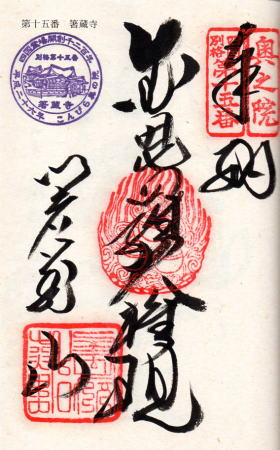 第十五番　箸蔵寺
四国霊場開創千二百年
別格第十五番
箸蔵寺
平成二十六年
こんぴら奥の院
奥之院
四国
別格第十五番
奉納
金毘羅大権現
箸蔵山